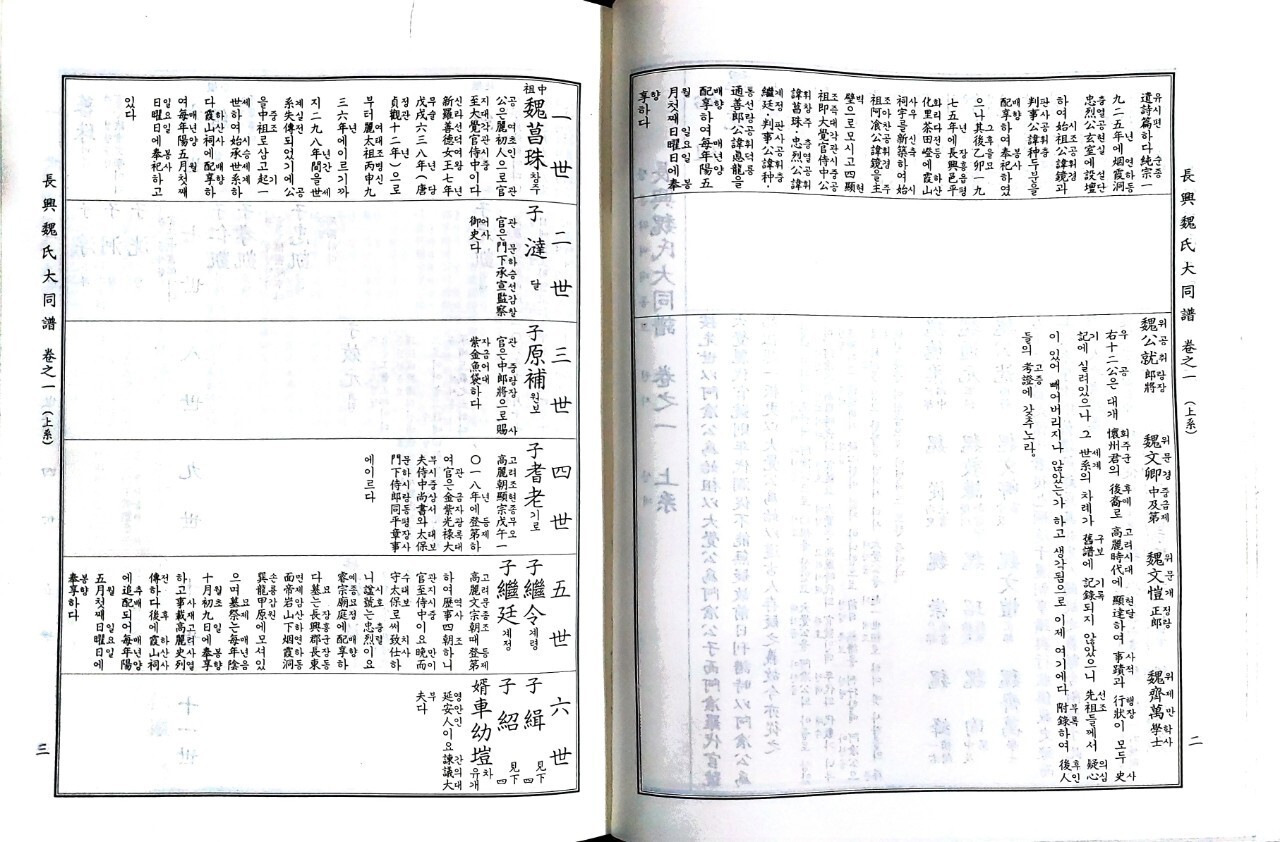 長興魏氏大同譜 卷之一 (上系)
遺詩篇하다純宗一
九二五年에烟霞洞
忠烈公玄室에設壇
하여始祖公諱鏡과
判事公諱种두분을
配享하여奉祀하였
으나其後乙卯一九
七五年에長興邑平
化里茶田嶝에霞山
祠宇를新築하여始
祖阿飡公諱鏡을主
壁으로모시고四顯
祖即大覺官侍中公
諱菖珠·忠烈公諱
繼廷·判事公諱种·
通善郎公諱慮龍을
配享하여每年陽五
月첫째日曜日에奉
享하다
魏公就郎將 魏文卿中及第 魏文愷正郎 魏齊萬學士
右十二公은 대개 懷州君의 後裔로 高麗時代에 顯達하여 事蹟과 行狀이 모두 史
記에 실려있으나 그 世系의 차례가 舊譜에 記錄되지 않았으니 先祖들께서 疑心
이 있어 빼어버리지나 않았는가 하고 생각됨으로 이제 여기에다 附錄하여 後人
들의 考證에 갖추노라.
二
一世
中祖 魏菖珠창주
公은麗初人으로官
至大覺官侍中이다
新羅善德女王七年
戊戌六三八年(唐
貞觀十二年)으로
부터麗太祖丙申九
三六年에이르기까
지二九八年間을世
系失傳되었기에公
을中祖로삼고起一
世하여始承世系하
다霞山祠에配享하
여每年陽五月첫째
日曜日에奉祀하고
있다
二世
子 澾달
官은門下承宣監察
御史다
三世
子原補원보
官은中郎將으로賜
紫金魚袋하다
四世
子耆老기로
高麗朝顯宗戊午一
〇一八年에登第하
여官은金紫光祿大
夫侍中尚書와太保
門下侍郎同平章事
에이르다
五世
子繼令계령
子繼廷계정
高麗文宗朝때登第
하여歷事四朝하니
官至侍中이요晚而
守太保로써致仕하
니諡號는忠烈이요
睿宗廟庭에配享하
다墓는長興郡長東
面帝岩山下烟霞洞
巽龍甲原에모셔있
으며墓祭는每年陰
十月初九日에奉享
하고事載高麗史列
傳하다後에霞山祠
에追配되어每年陽
五月첫째日曜日에
奉享하다
六世
子 緝 見下四
子 紹 見下四
婿車幼塏차유개
延安人이요諫議大
夫다
長興魏氏大同譜 卷之一 (上系)
三